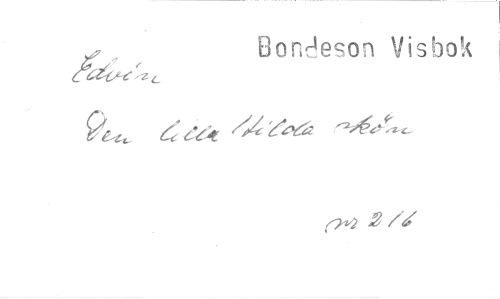 Bondeson Visbok
Edvin
Den lilla Hilda skön
nr 216